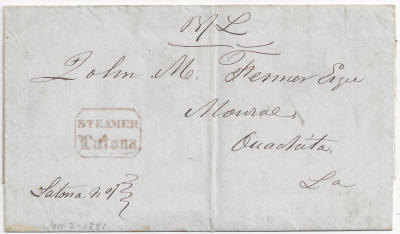 B/L
John M. Fenner Esqr
Monroe,
Ouachita
La
STEAMER
Latona
Latona No 7
Jan 2 - 1851